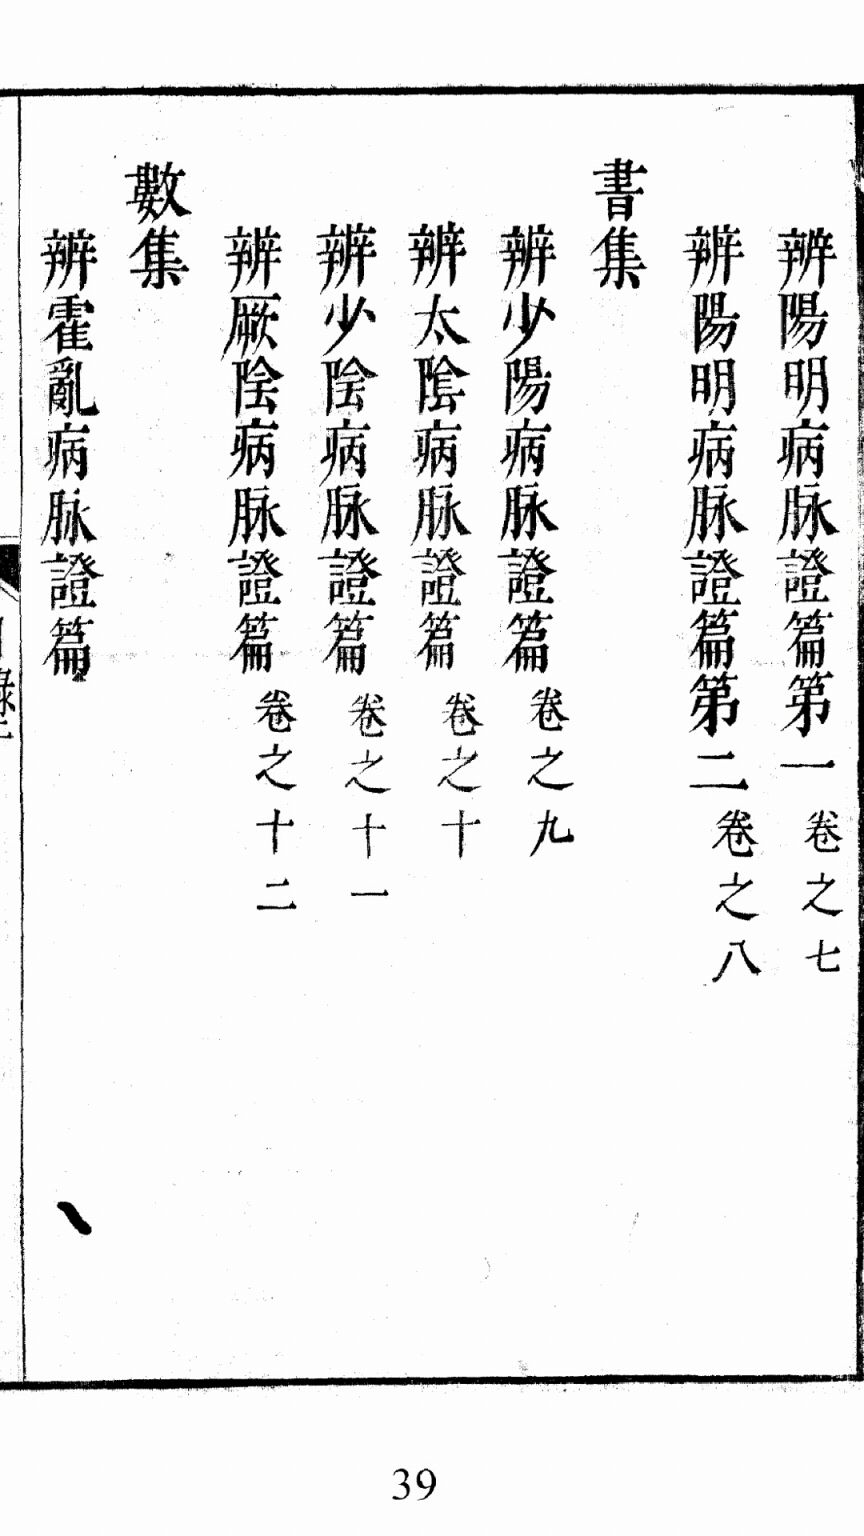 辨陽明病脉證篇第一 卷之七
辨陽明病脉證篇第二 卷之八
書集
辨少陽病脉證篇 卷之九
辨太陰病脉證篇 卷之十
辨少陰病脉證篇 卷之十一
辨厥陰病脉證篇 卷之十二
數集
辨霍亂病脉證篇
39